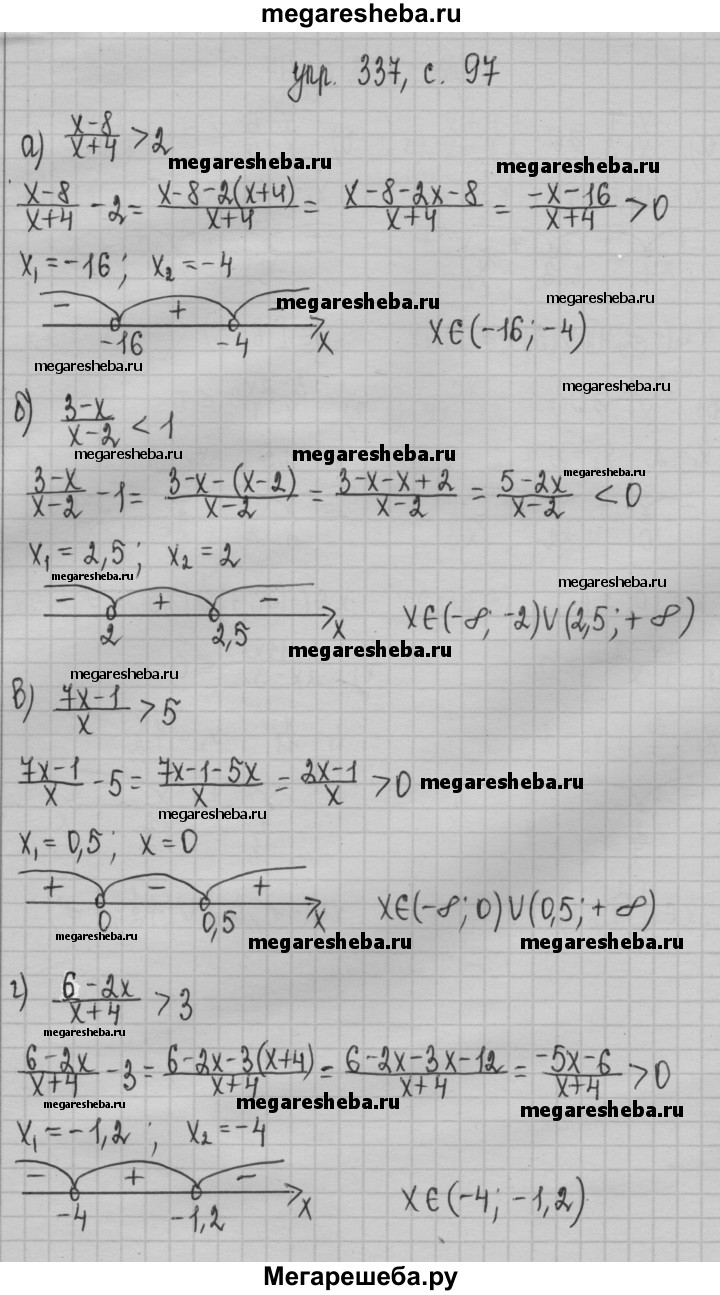 megaresheba.ru
упр. 337, с. 97
а) (x-8)/(x+4) > 2
megaresheba.ru
megaresheba.ru
(x-8)/(x+4) - 2 = (x-8-2(x+4))/(x+4) = (x-8-2x-8)/(x+4) = (-x-16)/(x+4) > 0
x₁ = -16; x₂ = -4
- + -
megaresheba.ru
megaresheba.ru
-16 -4 x
x∈(-16; -4)
megaresheba.ru
megaresheba.ru
б) (3-x)/(x-2) < 1
megaresheba.ru
megaresheba.ru
megaresheba.ru
(3-x)/(x-2) - 1 = (3-x-(x-2))/(x-2) = (3-x-x+2)/(x-2) = (5-2x)/(x-2) < 0
x₁ = 2,5; x₂ = 2
megaresheba.ru
megaresheba.ru
- + -
2 2,5 x
x∈(-∞; -2)∪(2,5; +∞)
megaresheba.ru
megaresheba.ru
в) (7x-1)/x > 5
(7x-1)/x - 5 = (7x-1-5x)/x = (2x-1)/x > 0
megaresheba.ru
megaresheba.ru
x₁ = 0,5; x = 0
+ - +
0 0,5 x
x∈(-∞; 0)∪(0,5; +∞)
megaresheba.ru
megaresheba.ru
megaresheba.ru
г) (6-2x)/(x+4) > 3
megaresheba.ru
(6-2x)/(x+4) - 3 = (6-2x-3(x+4))/(x+4) = (6-2x-3x-12)/(x+4) = (-5x-6)/(x+4) > 0
megaresheba.ru
megaresheba.ru
megaresheba.ru
x₁ = -1,2; x₂ = -4
- + -
-4 -1,2 x
x∈(-4; -1,2)
Мегарешеба.ру